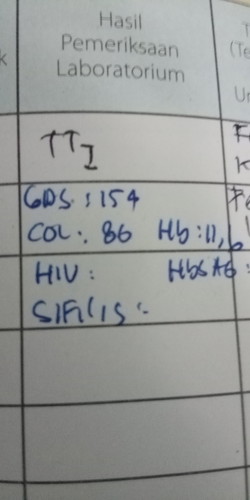 Hasil
Pemeriksaan
Laboratorium
(Te
TT I
GDS : 154
COL : 86 Hb : 11,6
HIV : HbSAG :
SIFILIS :-